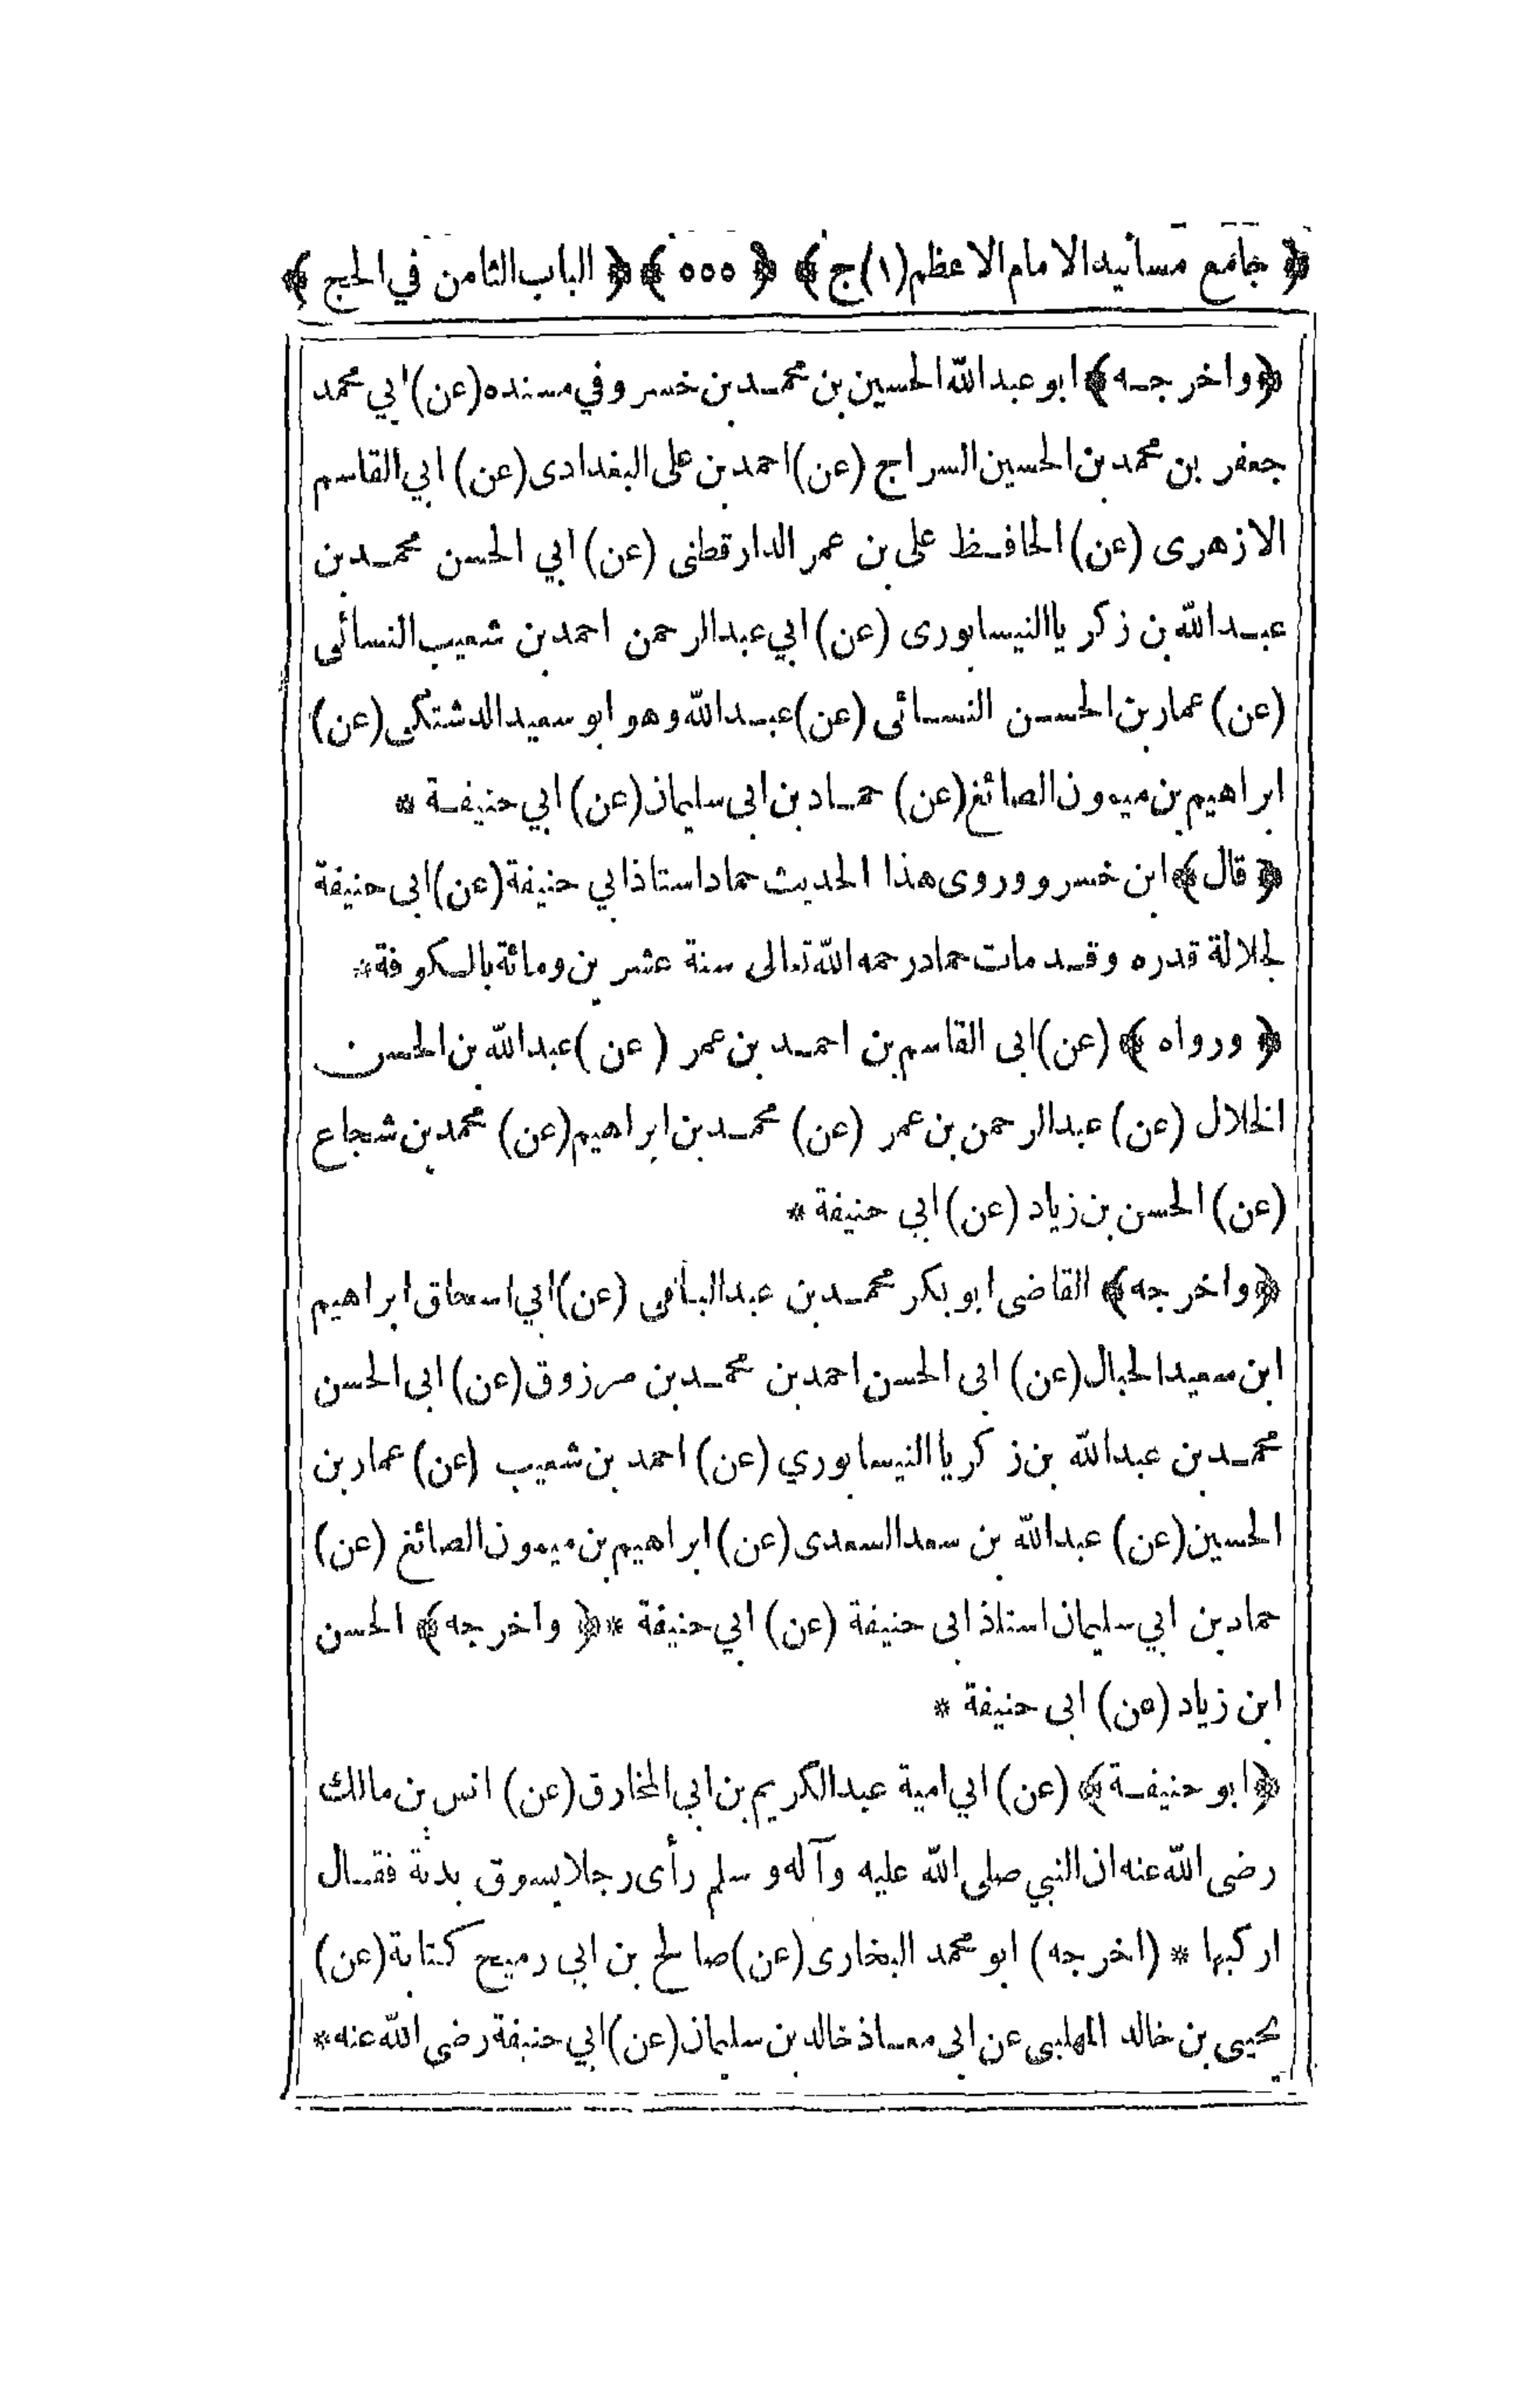 ﴿ جامع مسانيد الامام الاعظم (١) ج ﴾ ﴿ ٥٥٥ ﴾ ﴿ الباب الثامن في الحج ﴾
﴿واخرجه﴾ ابو عبدالله الحسين بن محمد بن خسرو في مسنده (عن) ابي محمد
جعفر بن محمد بن الحسين السراج (عن) احمد بن على البغدادى (عن) ابي القاسم
الازهرى (عن) الحافظ على بن عمر الدارقطنى (عن) ابي الحسن محمد بن
عبدالله بن زكريا النيسابورى (عن) ابي عبدالرحمن احمد بن شعيب النسائى
(عن) عمار بن الحسن النسائى (عن) عبدالله وهو ابو سعيد الدشتكى (عن)
ابراهيم بن ميمون الصائغ (عن) حماد بن ابى سليمان (عن) ابي حنيفة *
﴿ قال ﴾ ابن خسرو وروى هذا الحديث حماد استاذ ابي حنيفة (عن) ابى حنيفة
لجلالة قدره وقد مات حماد رحمه الله تعالى سنة عشرين ومائة بالكوفة *
﴿ ورواه ﴾ (عن) ابى القاسم بن احمد بن عمر (عن) عبدالله بن الحسن
الخلال (عن) عبدالرحمن بن عمر (عن) محمد بن ابراهيم (عن) محمد بن شجاع
(عن) الحسن بن زياد (عن) ابي حنيفة *
﴿واخرجه﴾ القاضى ابو بكر محمد بن عبدالباقى (عن) ابي اسحاق ابراهيم
ابن سعيد الحبال (عن) ابى الحسن احمد بن محمد بن مرزوق (عن) ابى الحسن
محمد بن عبدالله بن زكريا النيسابوري (عن) احمد بن شعيب (عن) عمار بن
الحسين (عن) عبدالله بن سعد السعدى (عن) ابراهيم بن ميمون الصائغ (عن)
حماد بن ابي سليمان استاذ ابى حنيفة (عن) ابي حنيفة * ﴿ واخرجه ﴾ الحسن
ابن زياد (عن) ابى حنيفة *
﴿ابو حنيفة﴾ (عن) ابي امية عبدالكريم بن ابي المخارق (عن) انس بن مالك
رضى الله عنه ان النبي صلى الله عليه وآله وسلم رأى رجلا يسوق بدنة فقال
اركبها * (اخرجه) ابو محمد البخارى (عن) صالح بن ابي رميح كتابة (عن)
يحيى بن خالد المهلبى عن ابى معاذ خالد بن سليمان (عن) ابي حنيفة رضى الله عنه *